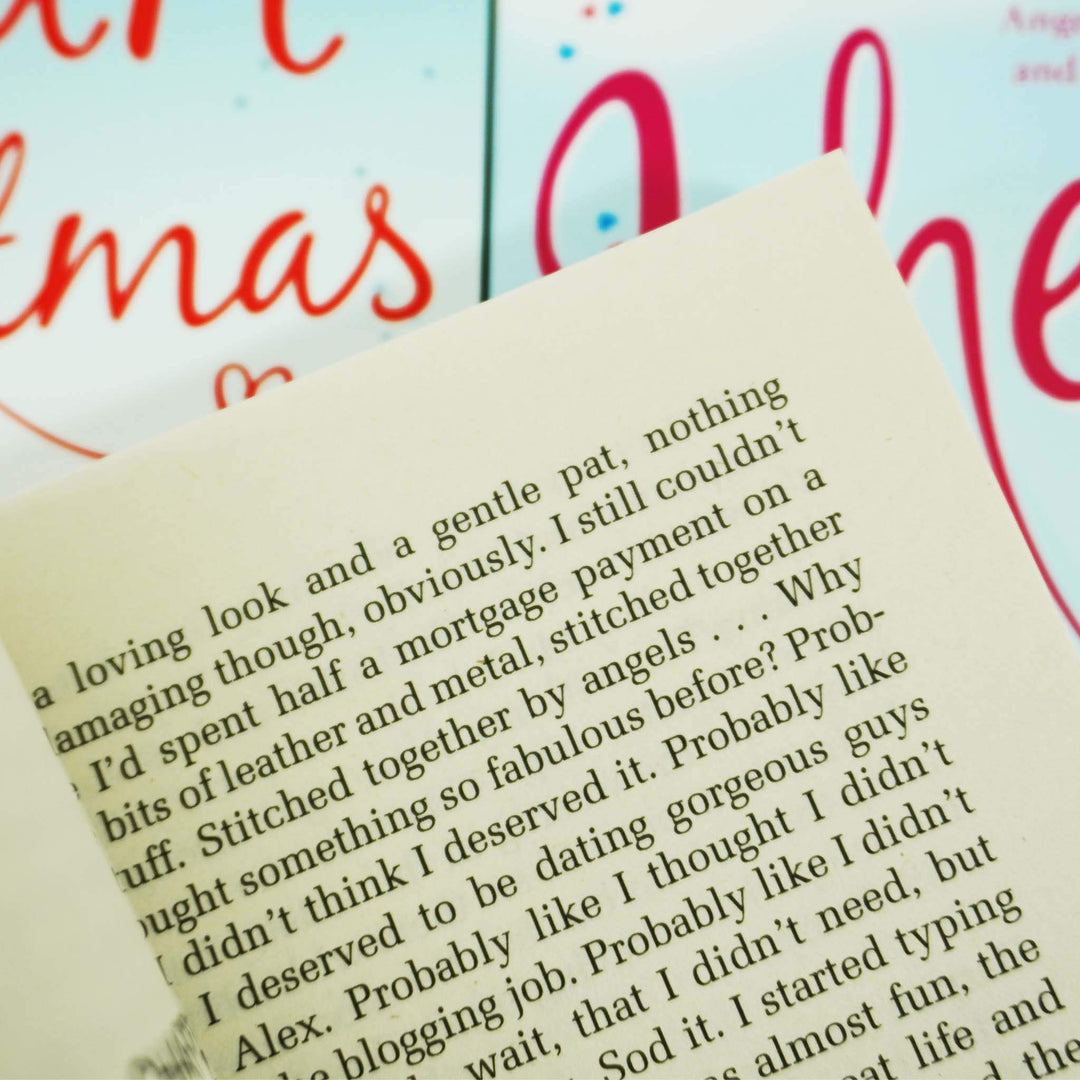 mas
Ange
and
he
a loving look and a gentle pat, nothing
amaging though, obviously. I still couldn't
I'd spent half a mortgage payment on a
bits of leather and metal, stitched together
uff. Stitched together by angels . . . Why
ought something so fabulous before? Prob-
I didn't think I deserved it. Probably like
I deserved to be dating gorgeous guys
Alex. Probably like I thought I didn't
blogging job. Probably like I didn't
wait, that I didn't need, but
Sod it. I started typing
almost fun, the
life and
the